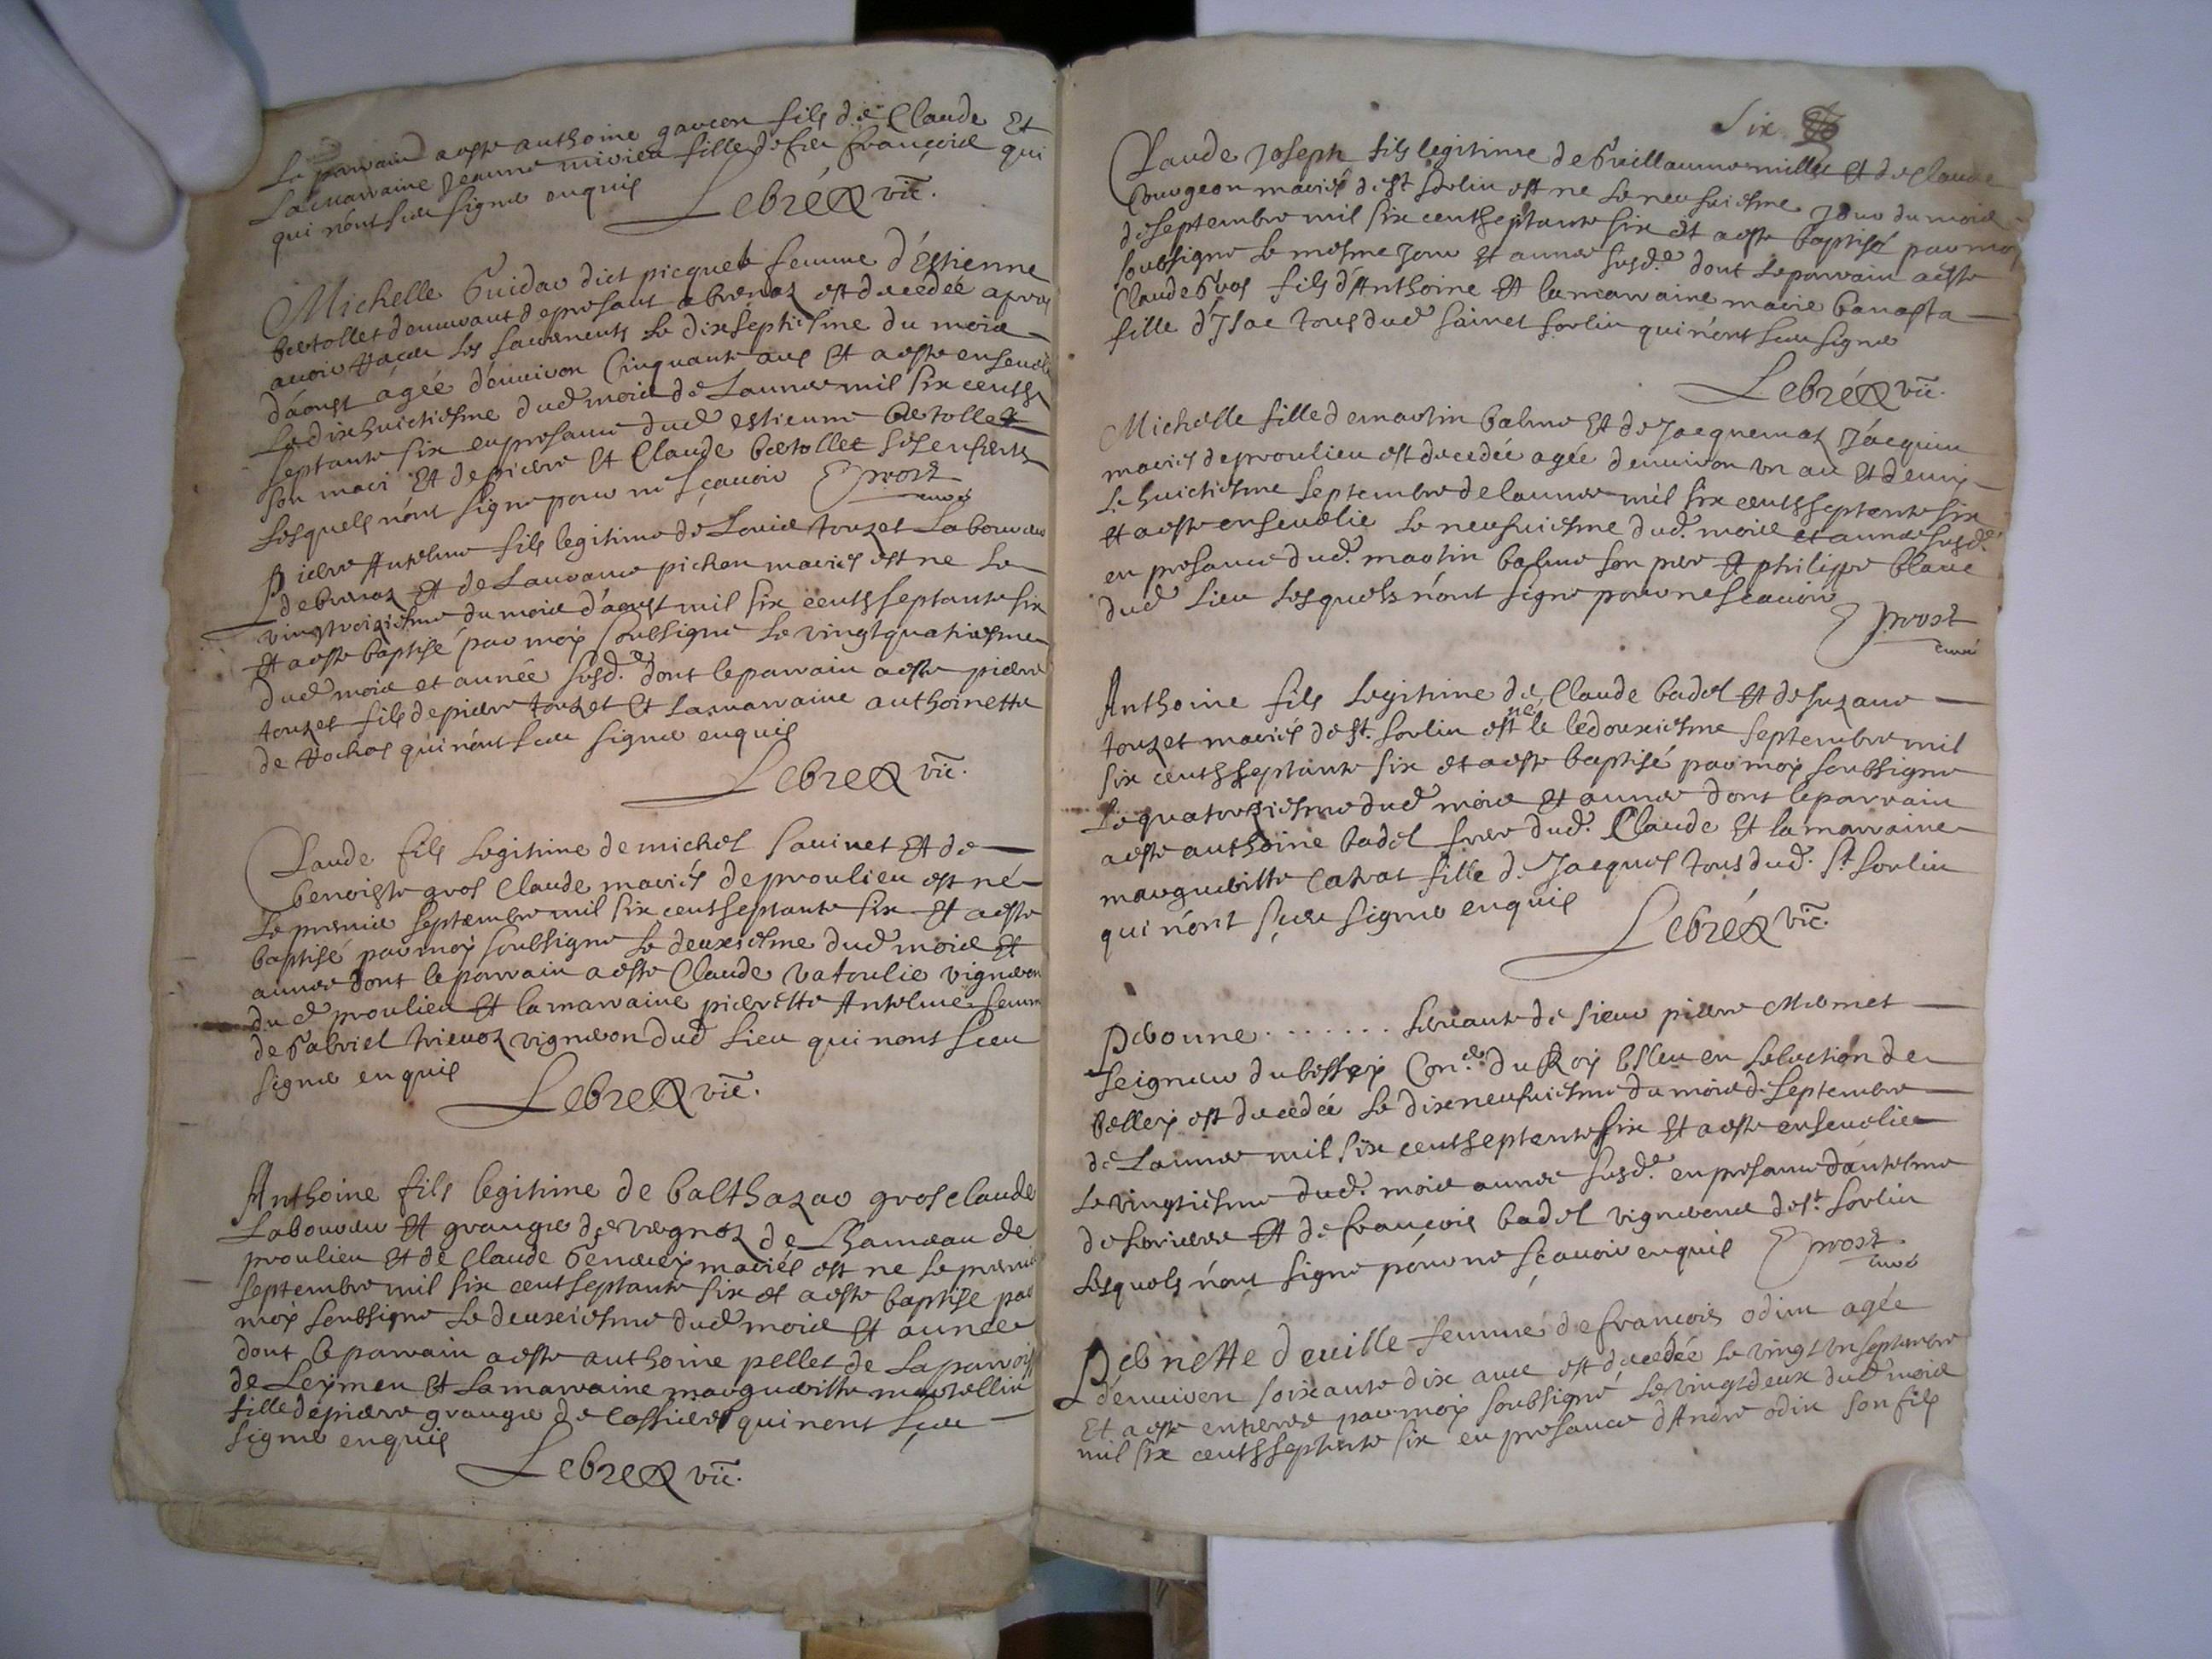 Le parrain a esté anthoine garcon fils de Claude Et
La marraine Jeanne fille de feu françois qui
qui n'ont sceu signer enquis
Lebré vic.
Michelle Guidar dict picquet femme d'Estienne
bertollet demeurant de present a brenaz est decedée apres
avoir reçeu les sacrements le dixseptiesme du mois
d'aoust agée d'environ Cinquante ans Et a esté ensevelie
Le dixhuictiesme dud. mois de Lannee mil six cents
septante six en presance dud estienne bertollet
son mari Et de pierre Et Claude bertollet ses enfents
Lesquels n'ont signé pour ne sçavoir Prost
curé
Pierre Antelme fils legitime de Louis touzet Laboureur
de brenaz Et de Laurance pichon mariés est ne Le
vingtroiziesme du mois d'aoust mil six cents septante six
Et a esté baptisé par moy soubsigné le vingtquatriesme
dud mois et année susd.e dont le parrain a esté pierre
touzet fils de pierre touzet Et La marraine anthoinette
de qui n'ont sceu signer enquis
Lebre vic.
Claude fils legitime de michel Savinet Et de
benoiste gros Claude mariés de proulieu est né
Le premier septembre mil six cent septante six Et a esté
baptisé par moy soubsigné le deuxiesme dud mois Et
annee dont le parrain a esté Claude vatoulie vigneron
dud proulieu Et la marraine pierrette Antelme femme
de Gabriel trienoz vigneron dud Lieu qui nont sceu
signer enquis
Lebre vic.
Anthoine fils legitime de balthazar gros claude
Laboureur Et granger de vergnoz de Lhameau de
proulieu Et de Claude mariés est ne Le premier
septembre mil six cent septante six et a esté baptisé par
moy soubsigné Le deuxiesme dud mois Et année
dont le parrain a esté anthoine pellet de La parroisse
de Leymen Et La marraine margueritte martellin
fille de pierre granger de qui nont sceu
signer enquis
Lebre vic.
Six
Claude Joseph fils legitime de Guillaume millet Et de Claude
Courgeon mariés de st sorlin est ne le neufviesme Jour du mois
de septembre mil six cent septante six Et a esté baptisé par moy
soubsigné Le mesme Jour Et annee susd.e dont le parrain a esté
Claude Gros fils d'Anthoine Et la marraine marie banasta
fille d'Isac tous dud sainct sorlin qui n'ont sceu signer
Lebré vic.
Michelle fille de martin balme Et de Jacquemaz Jacquin
mariés de proulieu est decedée agée d'environ un an Et demy
Le huictiesme septembre de lannee mil six cents septente six
Et a esté ensevelie Le neufviesme dud. mois et annee susd.e
en presance dud. martin balme son pere Et philippe blanc
dud Lieu Lesquels n'ont signé pour ne scavoir
Prost
curé
Anthoine fils Legitime de Claude badel Et de suzane
touzet mariés de st. sorlin est né le le douxiesme septembre mil
six cents septante six et a esté baptisé par moy soubsigné
Le quatorziesme dud mois Et annee dont le parrain
a esté anthoine badel frere dud. Claude Et la marraine
margueritte fille de Jacques tous dud. St sorlin
qui n'ont sçeu signer enquis
Lebré vic.
Peronne . . . . . . . servante de sieur pierre Mermet
seigneur du bessey Con.er du Roy Esleu en Lelection de
belley est decedée Le dixneufviesme du mois de septembre
de Lannee mil six cent septante six Et a esté ensevelie
Le vingtiesme dud. mois annee susd.e en presance d'antelme
de Loriere Et de françois badel vignerons de st. sorlin
Lesquels n'ont signé pour ne sçavoir enquis Prost
curé
Pernette deville femme de francois odin agée
d'environ soixante dix ans est decedée Le vingt un septembre
Et a esté enterree par moy soubsigné Le vingt deux dud mois
mil six cents septente six en presance d'Andre odin son fils